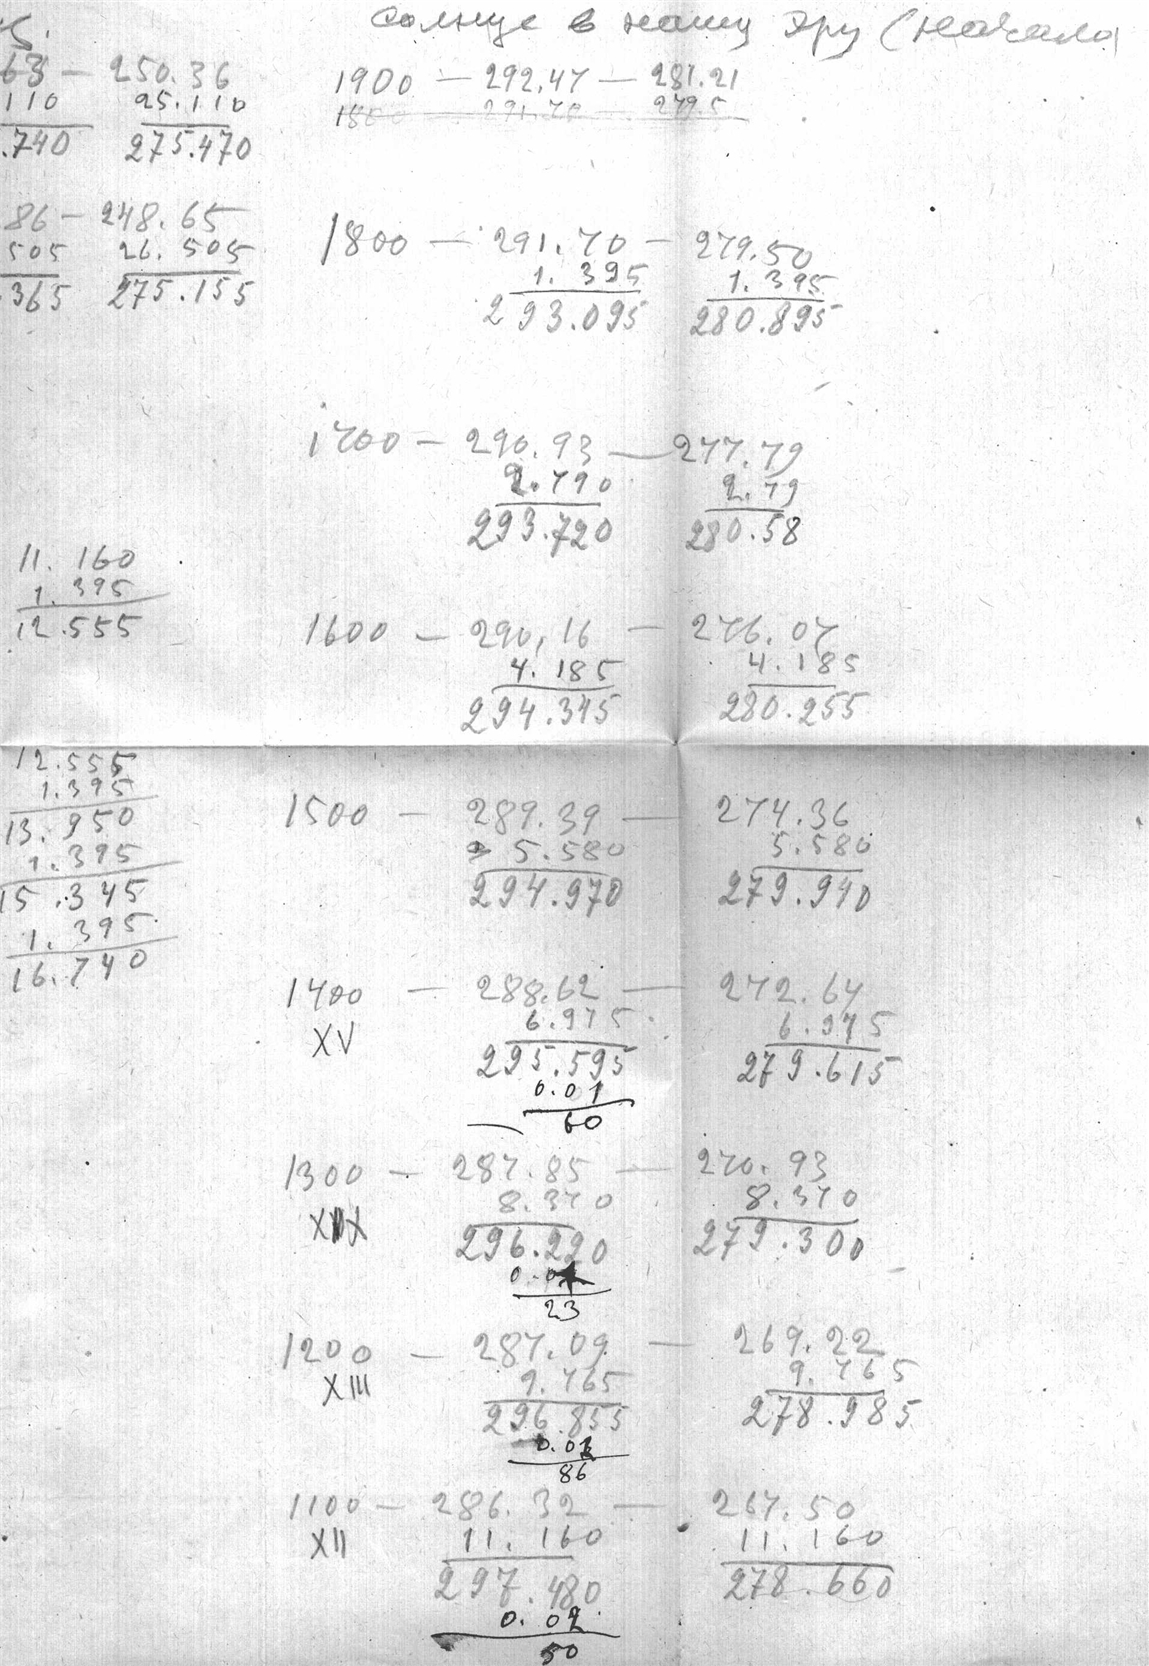 солнце в нашу эру (начала
63 — 250.36
110 25.110
.740 275.470
86 — 248.65
505 26.505
.365 275.155
11.160
1.395
12.555
12.555
1.395
13.950
1.395
15.345
1.395
16.740
1900 — 292.47 — 281.21
1800 — 291.70 — 279.5
1800 — 291.70 — 279.50
1.395 1.395
293.095 280.895
1700 — 290.93 — 277.79
2.790 2.79
293.720 280.58
1600 — 290,16 — 276.07
4.185 4.185
294.345 280.255
1500 — 289.39 — 274.36
5.580 5.580
294.970 279.940
1400 — 288.62 — 272.64
XV 6.975 6.975
295.595 279.615
0.01
60
1300 — 287.85 — 270.93
8.370 8.370
296.220 279.300
23
1200 — 287.09 — 269.22
XIII 9.765 9.765
296.855 278.985
86
1100 — 286.32 — 267.50
XII 11.160 11.160
297.480 278.660
0.02
50